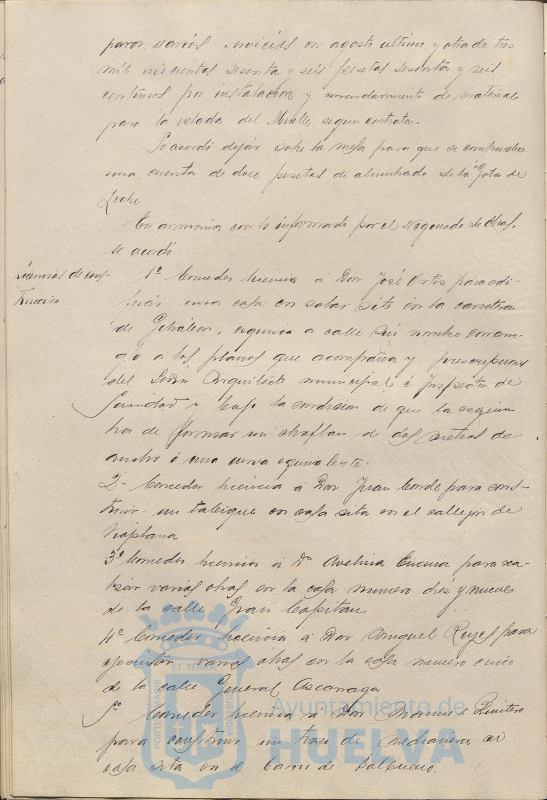 por varios servicios en agosto ultimo y otra de tres
mil seiscientas sesenta y seis pesetas sesenta y seis
centimos por instalacion y arrendamiento de material
para la velada del Muelle, segun contrata.
Se acordó dejar sobre la mesa para que se compruebe
una cuenta de doce pesetas de alumbrado de la "Gota de
Leche
En armonia con lo informado por el Negociado de Obras,
se acordó
Licencias de cons-
trucción
1º Conceder licencia á Don José Ortiz para edi-
ficar una casa en solar sito en la carretera
de Gibraleon, esquina a calle sin nombre con arre-
glo a los planos que acompaña y prescripciones
del Señor Arquitecto municipal é Inspector de
Sanidad y bajo la condicion de que la esquina
ha de formar un chaflan de dos metros de
ancho ó una curva equivalente.
2º Conceder licencia á Don Juan Conde para cons-
truir un tabique en casa sita en el callejon de
Viaplana
3º Conceder licencia á Dª Avelina para rea-
lizar varias obras en la casa numero diez y nueve
de la calle Gran Capitan
4º Conceder licencia á Don Miguel Reyes para
ejecutar varias obras en la casa numero cinco
de la calle General Azcarraga
5º Conceder licencia á Don Quintero
para construir un trozo de medianera en
casa sita en el
Ayuntamiento de
HUELVA